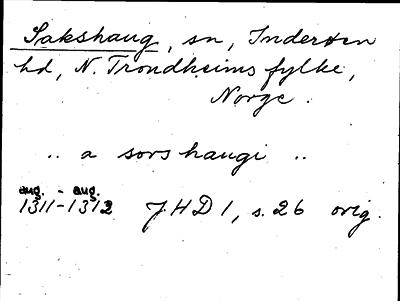 Sakshaug, sn, Inderøen
hd, N. Trondheims fylke,
Norge.
.. a sors haugi ..
aug. - aug.
1311-1312 JHD 1, s. 26 orig.